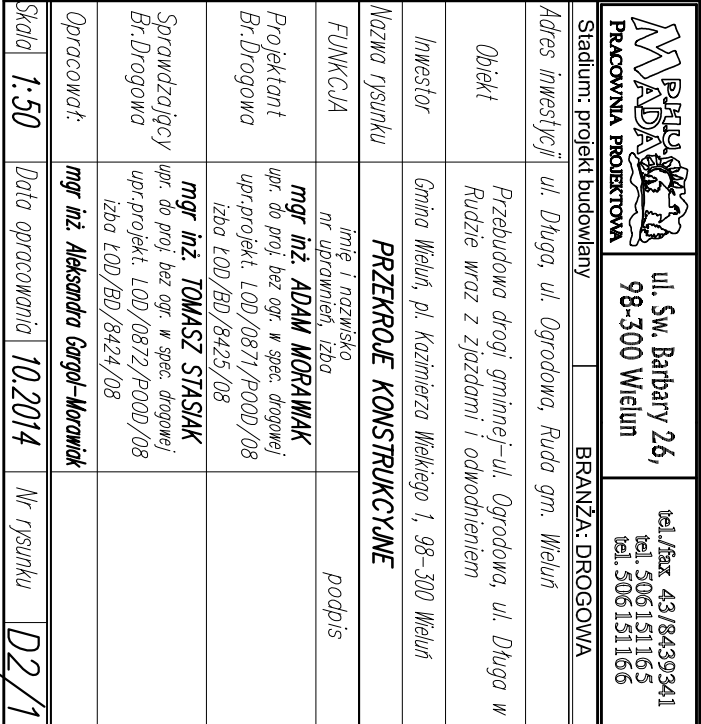 P.H.U.
MADA
PRACOWNIA PROJEKTOWA
ul. Sw. Barbary 26,
98-300 Wielun
tel./fax 43/8439341
tel. 506151165
tel. 506151166
Stadium: projekt budowlany
BRANŻA: DROGOWA
Adres inwestycji
ul. Długa, ul. Ogrodowa, Ruda gm. Wieluń
Obiekt
Przebudowa drogi gminnej-ul. Ogrodowa, ul. Długa w
Rudzie wraz z zjazdami i odwodnieniem
Inwestor
Gmina Wieluń, pl. Kazimierza Wielkiego 1, 98-300 Wieluń
Nazwa rysunku
PRZEKROJE KONSTRUKCYJNE
FUNKCJA
imię i nazwisko
nr uprawnień, izba
podpis
Projektant
Br.Drogowa
mgr inż. ADAM MORAWIAK
upr. do proj. bez ogr. w spec. drogowej
upr.projekt. LOD/0871/POOD/08
izba ŁOD/BD/8425/08
Sprawdzający
Br.Drogowa
mgr inż. TOMASZ STASIAK
upr. do proj. bez ogr. w spec. drogowej
upr.projekt. LOD/0872/POOD/08
izba ŁOD/BD/8424/08
Opracował:
mgr inż. Aleksandra Gargol-Morawiak
Skala
1:50
Data opracowania
10.2014
Nr rysunku
D2/1